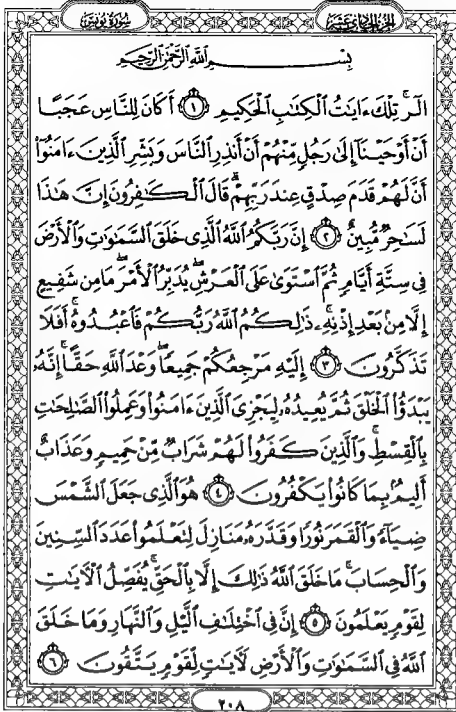 سُورَةُ يُونُسَ
الجزء الحادي عشر
بِسْمِ اللَّهِ الرَّحْمَٰنِ الرَّحِيمِ
الٓرۚ تِلْكَ ءَايَٰتُ ٱلْكِتَٰبِ ٱلْحَكِيمِ ١ أَكَانَ لِلنَّاسِ عَجَبًا
أَنْ أَوْحَيْنَآ إِلَىٰ رَجُلٍ مِّنْهُمْ أَنْ أَنذِرِ ٱلنَّاسَ وَبَشِّرِ ٱلَّذِينَ ءَامَنُوٓا۟
أَنَّ لَهُمْ قَدَمَ صِدْقٍ عِندَ رَبِّهِمْۗ قَالَ ٱلْكَٰفِرُونَ إِنَّ هَٰذَا
لَسَٰحِرٌ مُّبِينٌ ٢ إِنَّ رَبَّكُمُ ٱللَّهُ ٱلَّذِى خَلَقَ ٱلسَّمَٰوَٰتِ وَٱلْأَرْضَ
فِى سِتَّةِ أَيَّامٍ ثُمَّ ٱسْتَوَىٰ عَلَى ٱلْعَرْشِۖ يُدَبِّرُ ٱلْأَمْرَۖ مَا مِن شَفِيعٍ
إِلَّا مِنۢ بَعْدِ إِذْنِهِۦۚ ذَٰلِكُمُ ٱللَّهُ رَبُّكُمْ فَٱعْبُدُوهُۚ أَفَلَا
تَذَكَّرُونَ ٣ إِلَيْهِ مَرْجِعُكُمْ جَمِيعًاۖ وَعْدَ ٱللَّهِ حَقًّاۚ إِنَّهُۥ
يَبْدَؤُا۟ ٱلْخَلْقَ ثُمَّ يُعِيدُهُۥ لِيَجْزِىَ ٱلَّذِينَ ءَامَنُوا۟ وَعَمِلُوا۟ ٱلصَّٰلِحَٰتِ
بِٱلْقِسْطِۚ وَٱلَّذِينَ كَفَرُوا۟ لَهُمْ شَرَابٌ مِّنْ حَمِيمٍ وَعَذَابٌ
أَلِيمٌۢ بِمَا كَانُوا۟ يَكْفُرُونَ ٤ هُوَ ٱلَّذِى جَعَلَ ٱلشَّمْسَ
ضِيَآءً وَٱلْقَمَرَ نُورًا وَقَدَّرَهُۥ مَنَازِلَ لِتَعْلَمُوا۟ عَدَدَ ٱلسِّنِينَ
وَٱلْحِسَابَۚ مَا خَلَقَ ٱللَّهُ ذَٰلِكَ إِلَّا بِٱلْحَقِّۚ يُفَصِّلُ ٱلْءَايَٰتِ
لِقَوْمٍ يَعْلَمُونَ ٥ إِنَّ فِى ٱخْتِلَٰفِ ٱلَّيْلِ وَٱلنَّهَارِ وَمَا خَلَقَ
ٱللَّهُ فِى ٱلسَّمَٰوَٰتِ وَٱلْأَرْضِ لَءَايَٰتٍ لِّقَوْمٍ يَتَّقُونَ ٦
٢٠٨